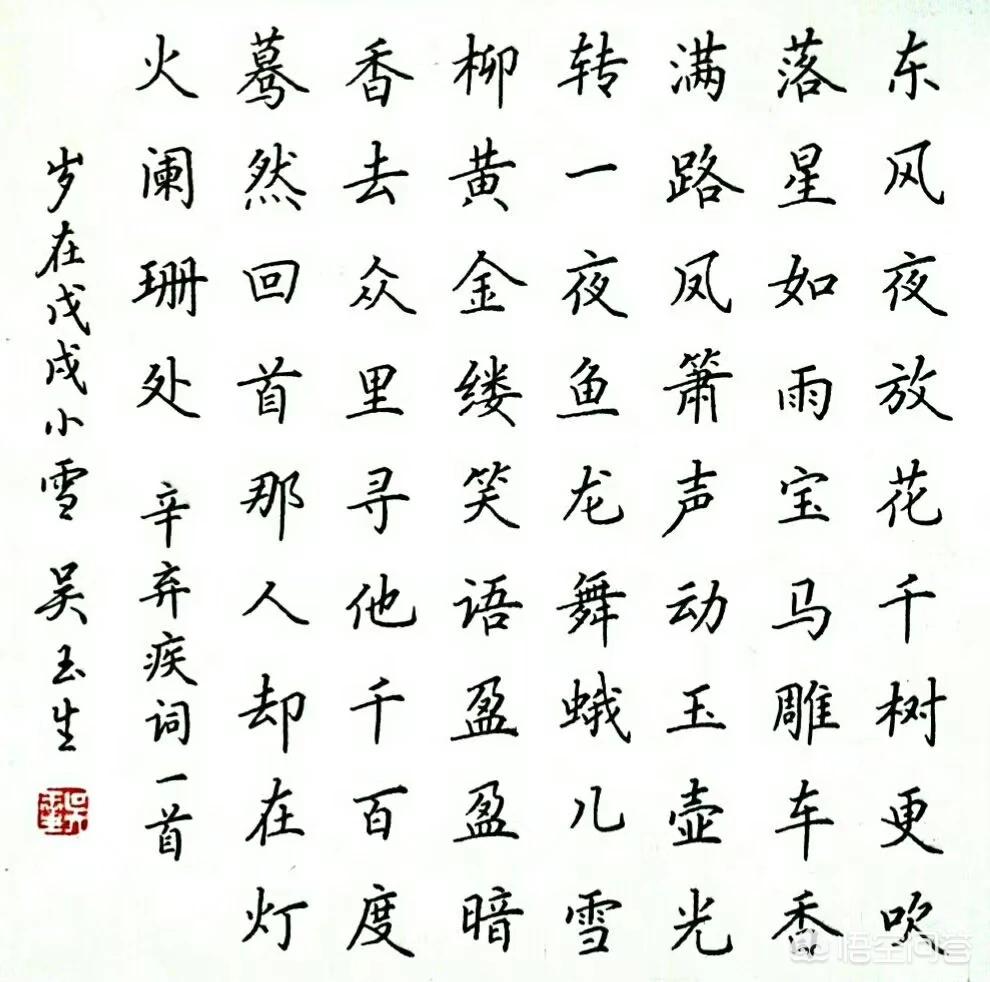 东风夜放花千树更吹
落星如雨宝马雕车香
满路凤箫声动玉壶光
转一夜鱼龙舞蛾儿雪
柳黄金缕笑语盈盈暗
香去众里寻他千百度
蓦然回首那人却在灯
火阑珊处 辛弃疾词一首
岁在戊戌小雪 吴玉生
悟空问答